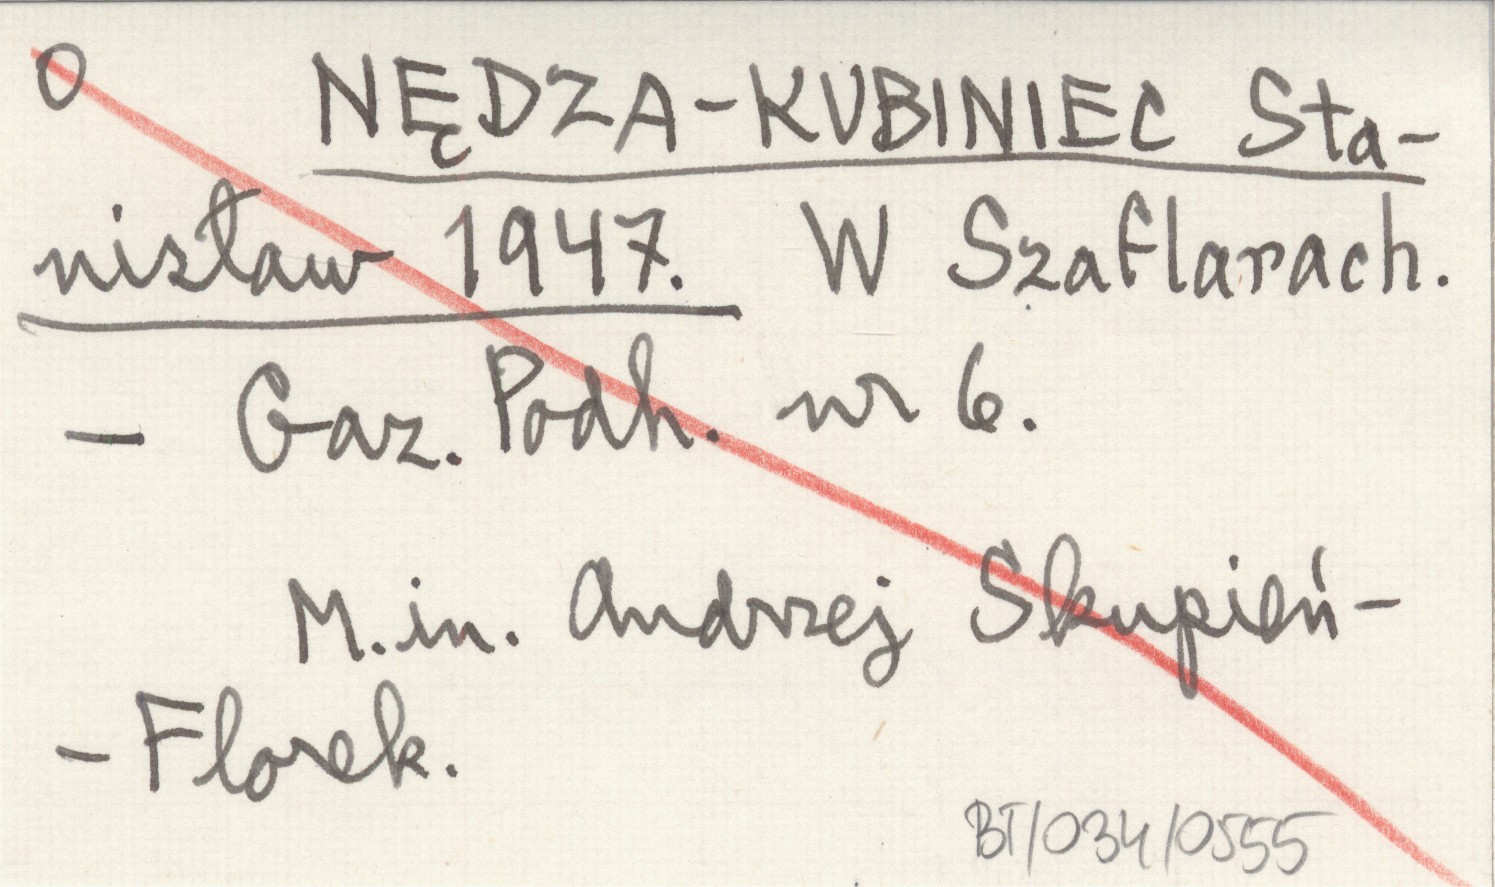 O NĘDZA-KUBINIEC Sta-
nisław 1947. W Szaflarach.
- Gaz. Podh. nr 6.
M.in. Andrzej Skupień-
-Florek.
BT/034/0555